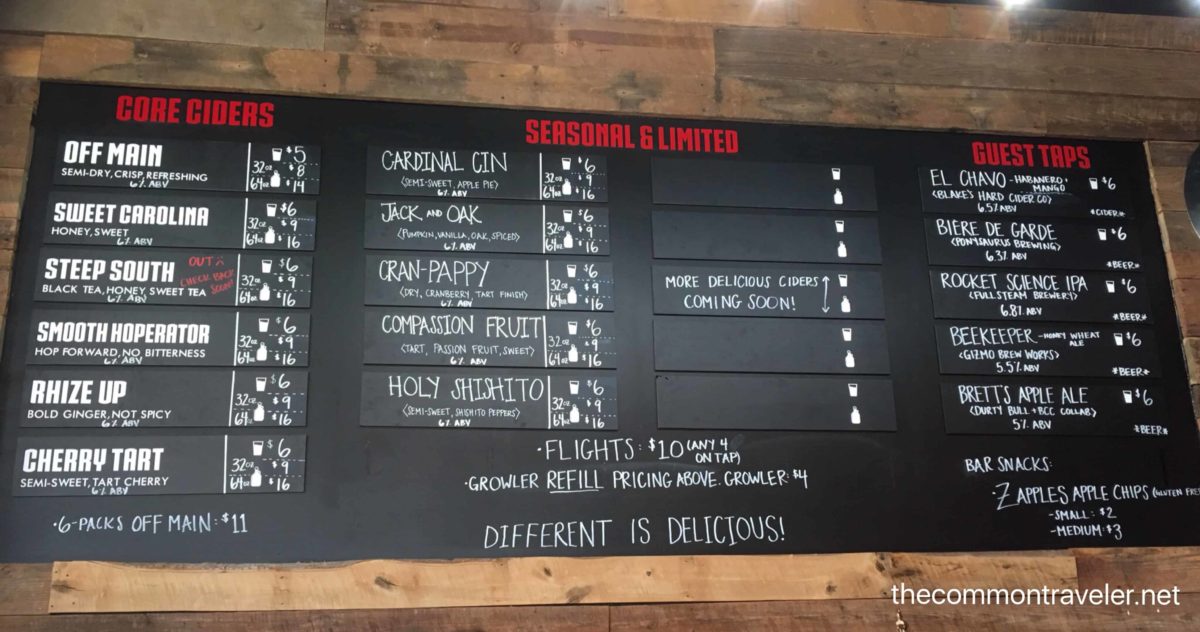 CORE CIDERS
OFF MAIN
SEMI-DRY, CRISP, REFRESHING
6% ABV
$5
32oz $8
64oz $14
SWEET CAROLINA
HONEY, SWEET
6% ABV
$6
32oz $9
64oz $16
STEEP SOUTH
BLACK TEA, HONEY SWEET TEA
6% ABV
OUT
CHECK BACK
SOON!
$6
32oz $9
64oz $16
SMOOTH HOPERATOR
HOP FORWARD, NO BITTERNESS
6% ABV
$6
32oz $9
64oz $16
RHIZE UP
BOLD GINGER, NOT SPICY
6% ABV
$6
32oz $9
64oz $16
CHERRY TART
SEMI-SWEET, TART CHERRY
6% ABV
$6
32oz $9
64oz $16
·6-PACKS OFF MAIN: $11
SEASONAL & LIMITED
CARDINAL CIN
<SEMI-SWEET, APPLE PIE>
6% ABV
$6
32oz $9
64oz $16
JACK AND OAK
<PUMPKIN, VANILLA, OAK, SPICED>
6% ABV
$6
32oz $9
64oz $16
CRAN-PAPPY
<DRY, CRANBERRY, TART FINISH>
6% ABV
$6
32oz $9
64oz $16
COMPASSION FRUIT
<TART, PASSION FRUIT, SWEET>
6% ABV
$6
32oz $9
64oz $16
HOLY SHISHITO
<SEMI-SWEET, SHISHITO PEPPERS>
6% ABV
$6
32oz $9
64oz $16
MORE DELICIOUS CIDERS
COMING SOON!
·FLIGHTS: $10 (ANY 4
ON TAP)
·GROWLER REFILL PRICING ABOVE. GROWLER: $4
DIFFERENT IS DELICIOUS!
GUEST TAPS
EL CHAVO - HABANERO +
MANGO
<BLAKE'S HARD CIDER CO>
6.5% ABV
$6
*CIDER*
BIÈRE DE GARDE
<PONYSAURUS BREWING>
6.3% ABV
$6
*BEER*
ROCKET SCIENCE IPA
<FULLSTEAM BREWERY>
6.8% ABV
$6
*BEER*
BEEKEEPER - HONEY WHEAT
ALE
<GIZMO BREW WORKS>
5.5% ABV
$6
*BEER*
BRETT'S APPLE ALE
<DURTY BULL + BCC COLLAB>
5% ABV
$6
*BEER*
BAR SNACKS:
·7 APPLES APPLE CHIPS (GLUTEN FRE
-SMALL: $2
-MEDIUM: $3
thecommontraveler.net